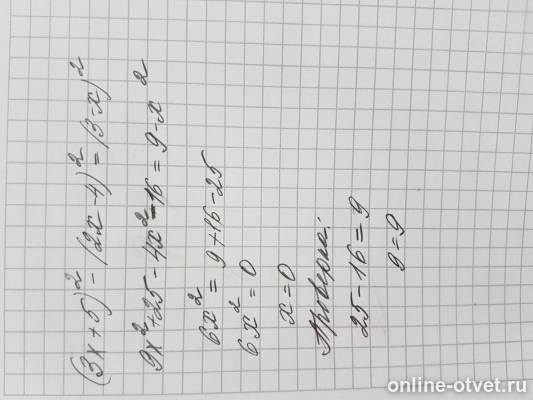 (3x+5)² - (2x-4)² = (3-x)²
9x²+25 - 4x² - 16 = 9 - x²
6x² = 9+16-25
6x² = 0
x=0
Проверка:
25-16=9
9=9
online-otvet.ru